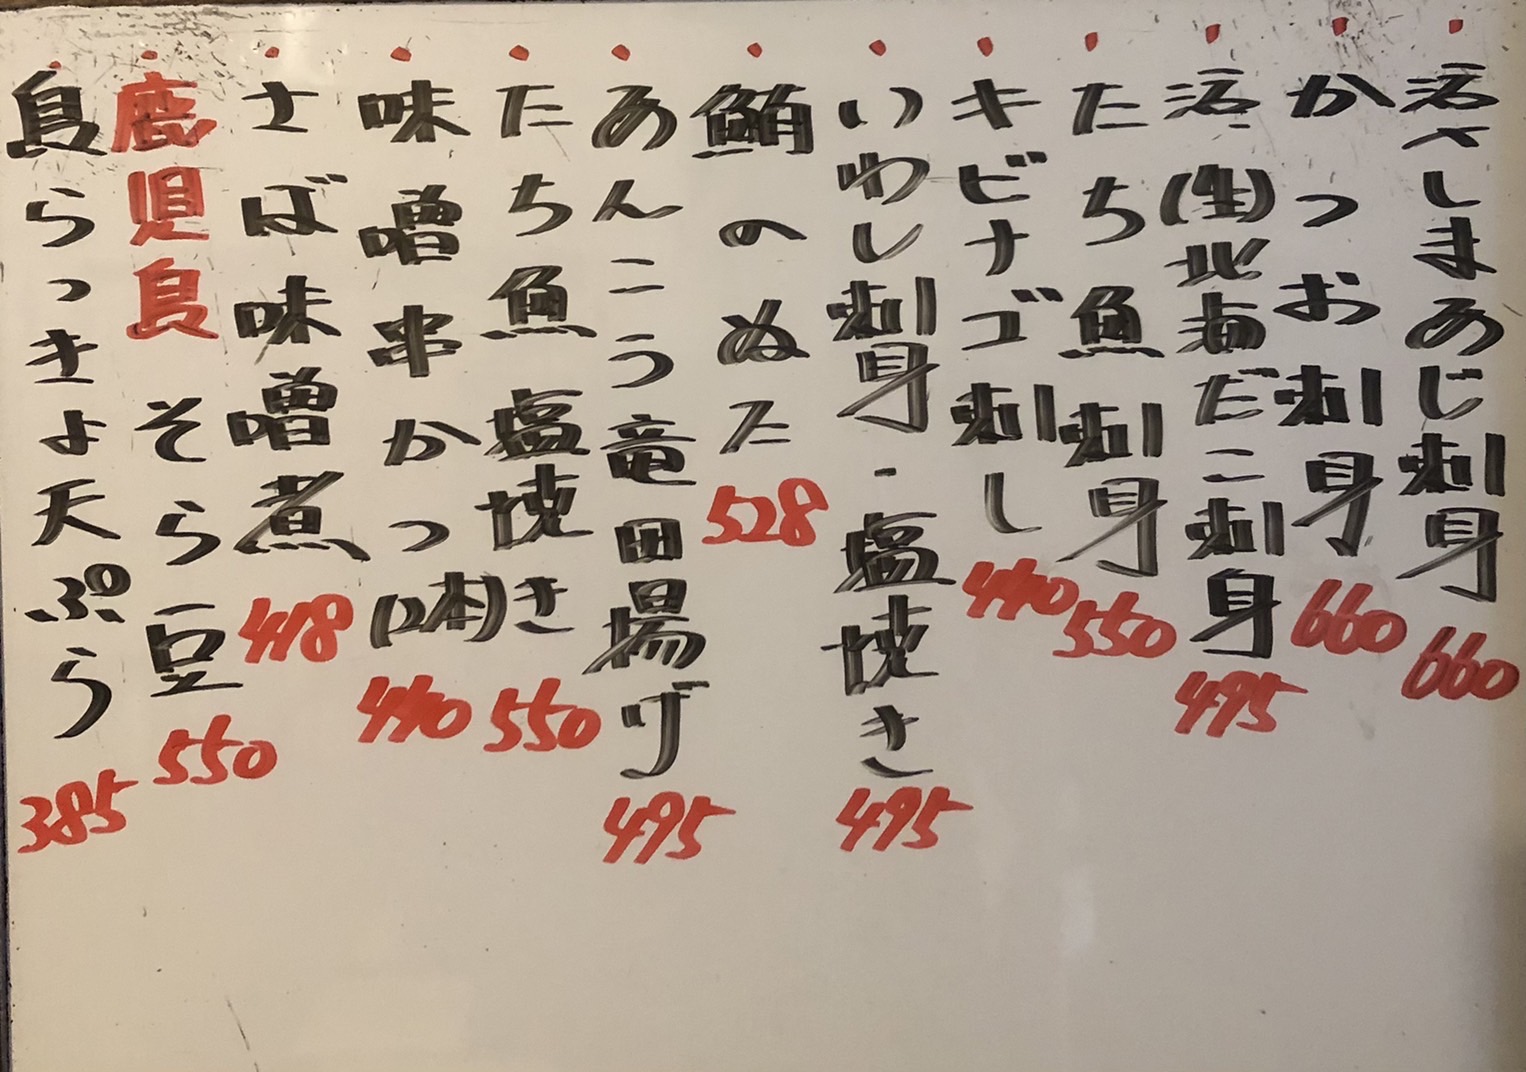 活〆しまあじ刺身 660
かつお刺身 660
活(生)北海だこ刺身 495
たち魚刺身 550
キビナゴ刺し 440
いわし刺身・塩焼き 495
鮪のぬた 528
あんこう竜田揚げ 495
たち魚塩焼き 550
味噌串かつ(2本) 440
さば味噌煮 418
鹿児島そら豆 550
島らっきょ天ぷら 385